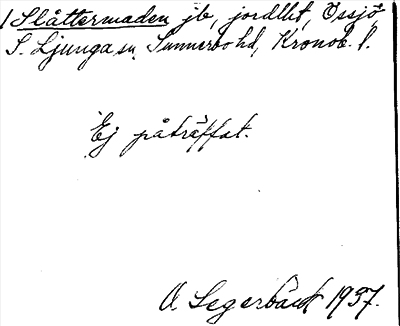 1 Slåttermaden jb, jordlht, Össjö,
S. Ljunga sn, Sunnerbo hd, Kronob. l.
Ej påträffat.
A. Segerbäck 1937.